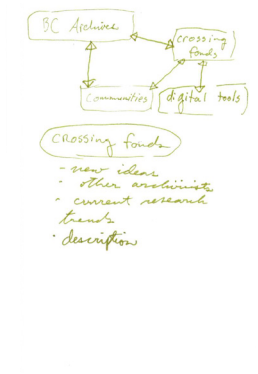 BC Archives
crossing
fonds
communities
digital tools
crossing fonds
- new ideas
- other archivists
- current research
trends
- description